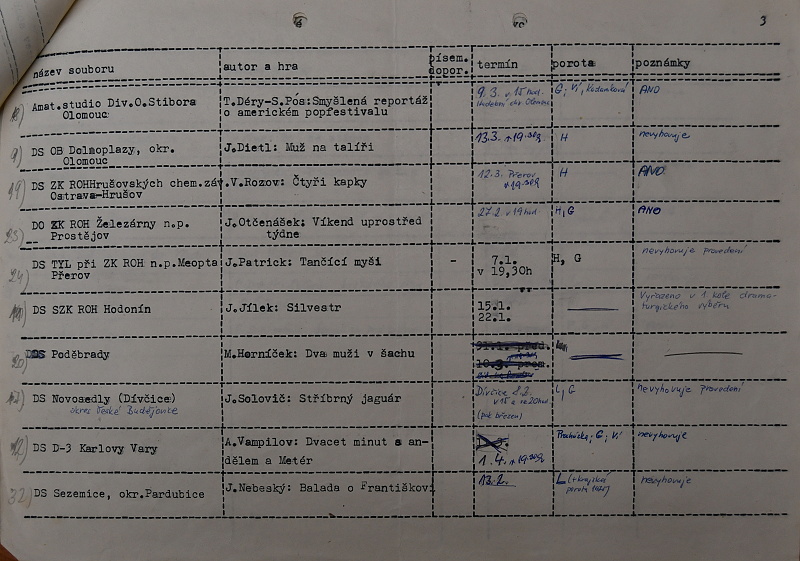 3
název souboru autor a hra písem. dopor. termín porota poznámky
Amat.studio Div.O.Stibora T.Déry-S.Pós:Smyšlená reportáž 9.3. v 15 hod. G; Ví, ANO
Olomouc o americkém popfestivalu
9) DS OB Dolnoplazy, okr. J.Dietl: Muž na talíři 13.3. v 19.30h H nevyhovuje
Olomouc
19) DS ZK ROHHrušovských chem.záv. V.Rozov: Čtyři kapky 12.3. Přerov H ANO
Ostrava-Hrušov v 19.30h
25) DO ZK ROH Železárny n.p. J.Otčenášek: Víkend uprostřed 27.2. v 19 hod. H, G ANO
Prostějov týdne
24) DS TYL při ZK ROH n.p.Meopta J.Patrick: Tančící myši - 7.1. H, G nevyhovuje provedení
Přerov v 19,30h
DS SZK ROH Hodonín J.Jílek: Silvestr 15.1. Vyřazeno v 1. kole drama-
22.1. turgického výběru
20) DS Poděbrady M.Horníček: Dva muži v šachu
DS Novosedly (Dívčice) J.Solovič: Stříbrný jaguár Dívčice 8.2. L, G nevyhovuje provedení
okres České Budějovice v 15 a ve 20hod.
(pak březen)
12) DS D-3 Karlovy Vary A.Vampilov: Dvacet minut s an- Procházka; G; Ví nevyhovuje
dělem a Metér 1.4. v 19.30h
32) DS Sezemice, okr.Pardubice J.Nebeský: Balada o Františkovi 13.2. L (+krajská nevyhovuje
porota